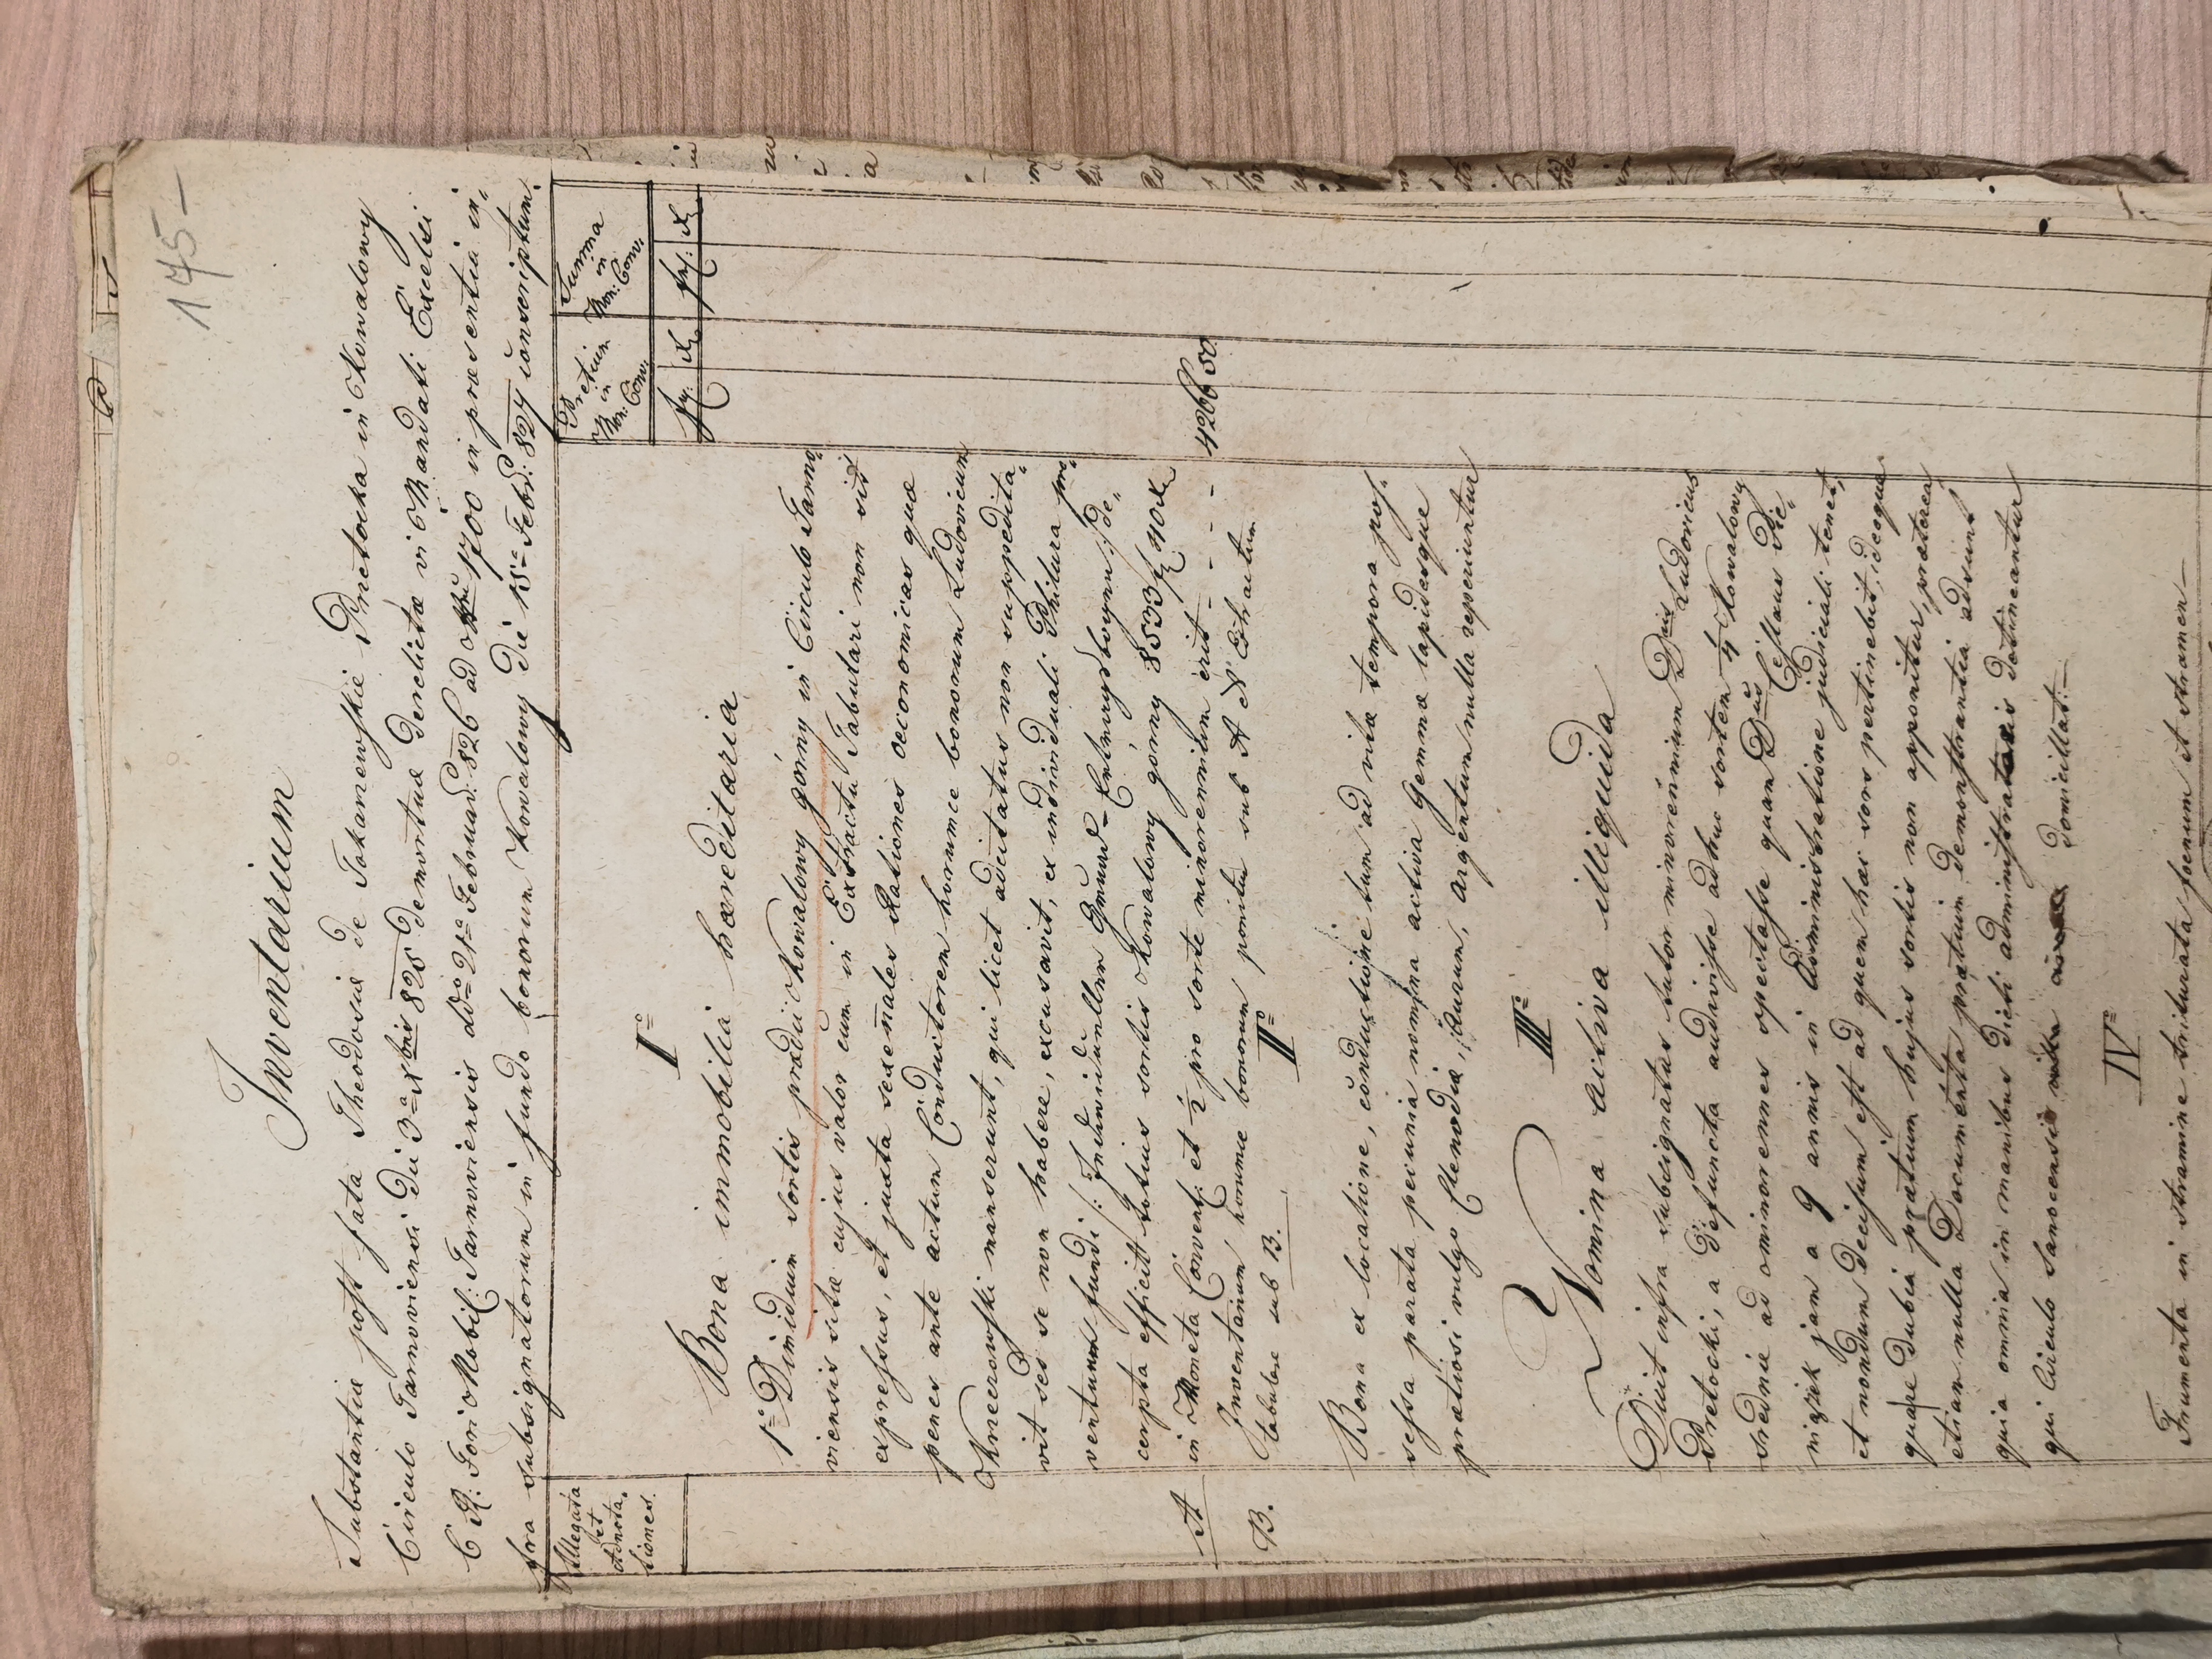 175 –
Inventarium
Substantiæ post fata Theodosiæ de Tokarzewskie Pretocka in Kowalowy
Circulo Tarnoviensi die 3ª Xbris 825 demortuæ derelictæ vi Mandati Excelsi
C. R. Fori Nobil: Tarnoviensis ddº 21ª Februar: 826 ad Nru 1700 in præsentia in-
fra subsignatorum in fundo bonorum Kowalowy die 15ª Febr: 827 conscriptum.
Allegata et Adnotationes.
Pretium in Mon: Conv:
Summa in Mon: Conv:
fr: xr
fr: xr
Iº
Bona immobilia hæreditaria
1º Dimidium sortis prædii Kowalowy górny in Circulo Tarno-
viensis sitæ cujus valor cum in Extractu Tabulari non sit
expressus, et juxta sexenales Rationes oeconomicas quæ
penes ante actum Conductorem horumce bonorum Ludovicum
manserunt, qui licet adcitatus non suppedita-
vit sed se non habere, excusavit, ex individuali
ventum fundi /: Individuellen Grund :/ de-
cerpta efficit totius sortis Kowalowy górny 8533 fr 40 xr
in Moneta Convent: et ½ pro sorte minorennium erit - - - - 4266 50
A
Inventarium horumce bonorum ponitur sub A et Extractum
B.
tabulare sub B.
IIº
Bona ex locatione, conductione tum ad vitæ tempora pos-
sessa parata pecunia nomina activa gemmæ lapidesque
prætiosi vulgo Clenodia, Aurum, argentum nulla reperiuntur
IIIº
Nomina activa illiquida
Dicit infra subsignatus tutor minorennium Dnus Ludovicus
Pretocki, a defuncta audivisse adhuc sortem ¼ Kowalowy
srednie ad ominorennes spectasse quam Dnus Cestaus
jam a 9 annis in Administratione judiciali tenet,
et nondum decisum est ad quem hæc sors pertinebit, ideoque
quare dubia prætium hujus sortis non apponitur, præterea
etiam nulla Documenta prætium demonstrantia adsunt
quia omnia in manibus dicti administratoris detineantur
qui Circulo Sanocensis domicillat. –
IVº
Frumenta in stramine triturata foenum et stramen –